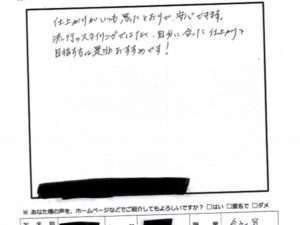 仕上がりがいつも思ったとおりで安心できます。
流行りのスタイリングではなく、自分に合った仕上がりを
目指す方は是非おすすめです!
※ あなた様の声を、ホームページなどでご紹介してもよろしいですか? □はい □匿名で □ダメ